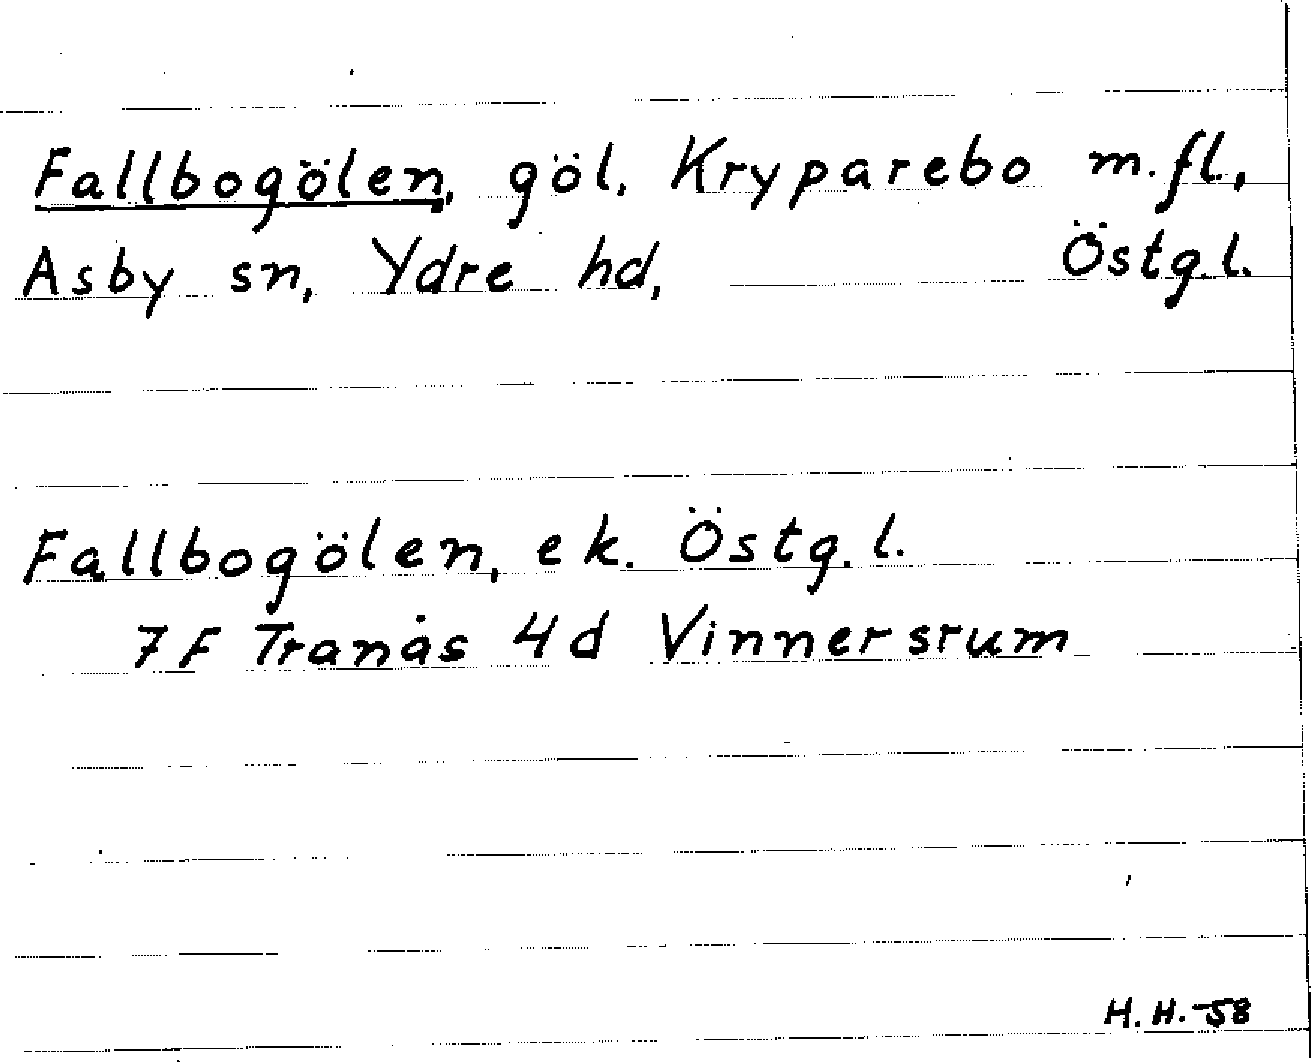 Fallbogölen, göl. Kryparebo m.fl,
Asby sn, Ydre hd, Östg.l.
Fallbogölen, ek. Östg.l.
7F Tranås 4d Vinnersrum
H.H.-58